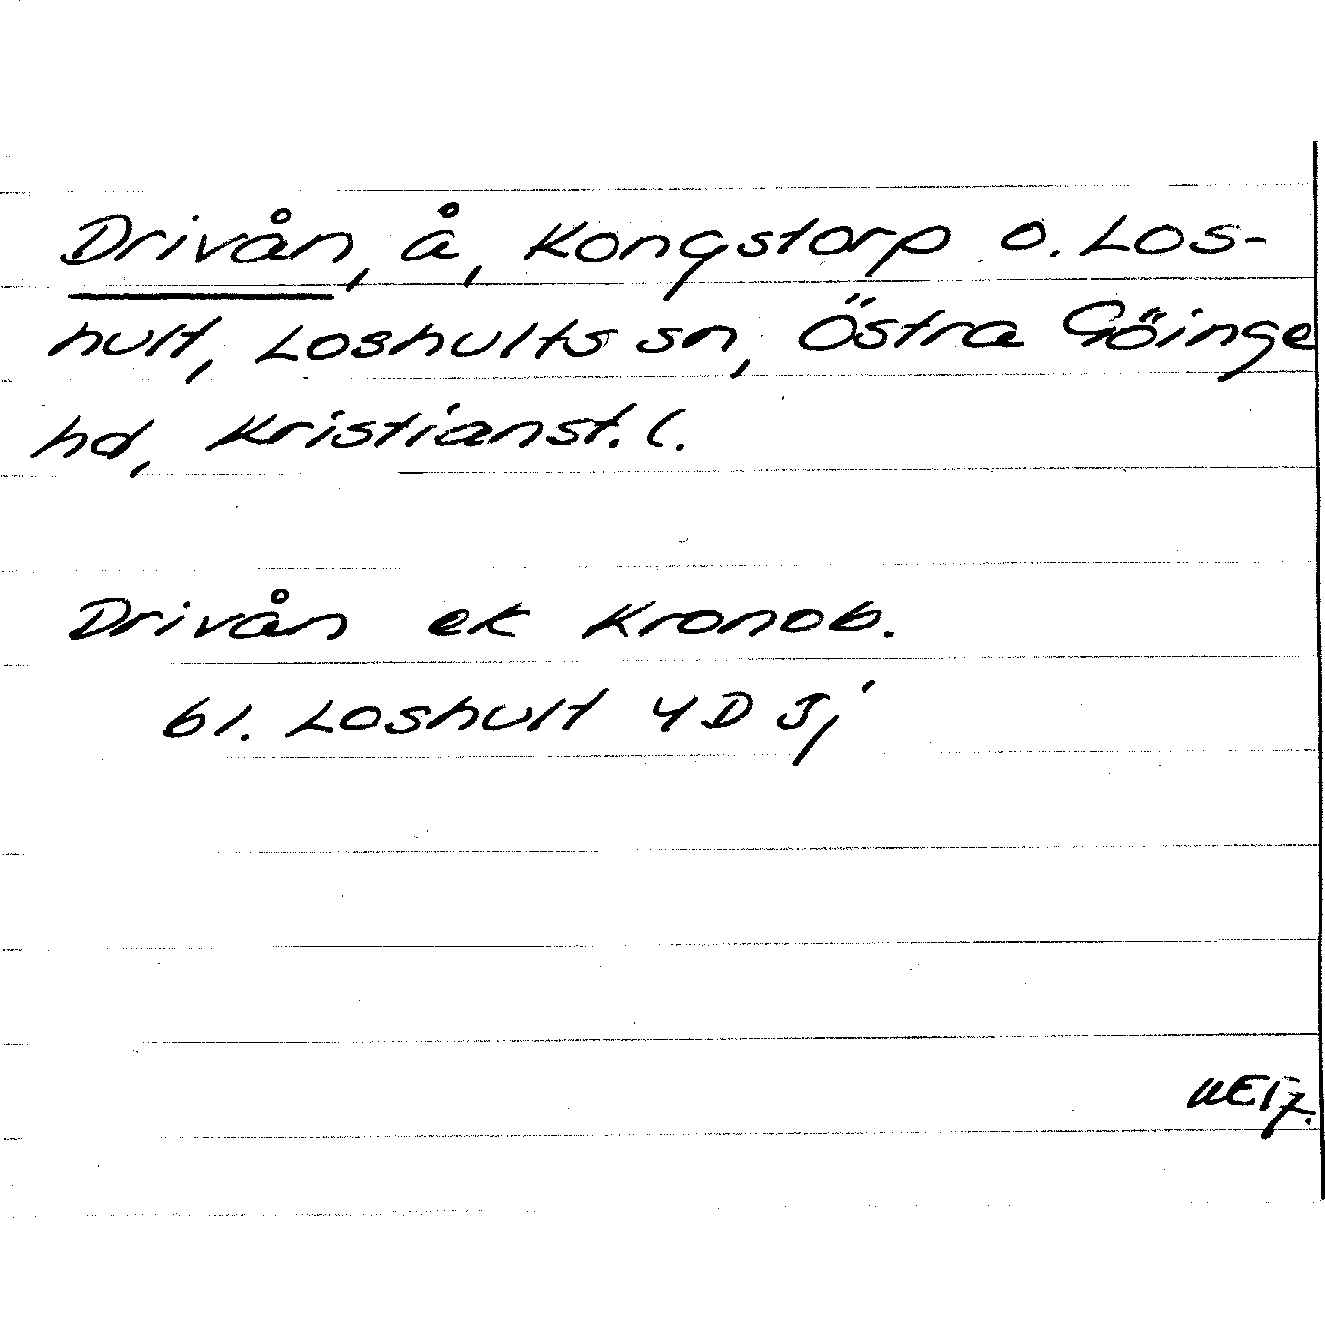 Drivån, å, Kongstorp o. Los-
hult, Loshults sn, Östra Göinge
hd, Kristianst. l.
Drivån ek Kronob.
bl. Loshult 4D Jj